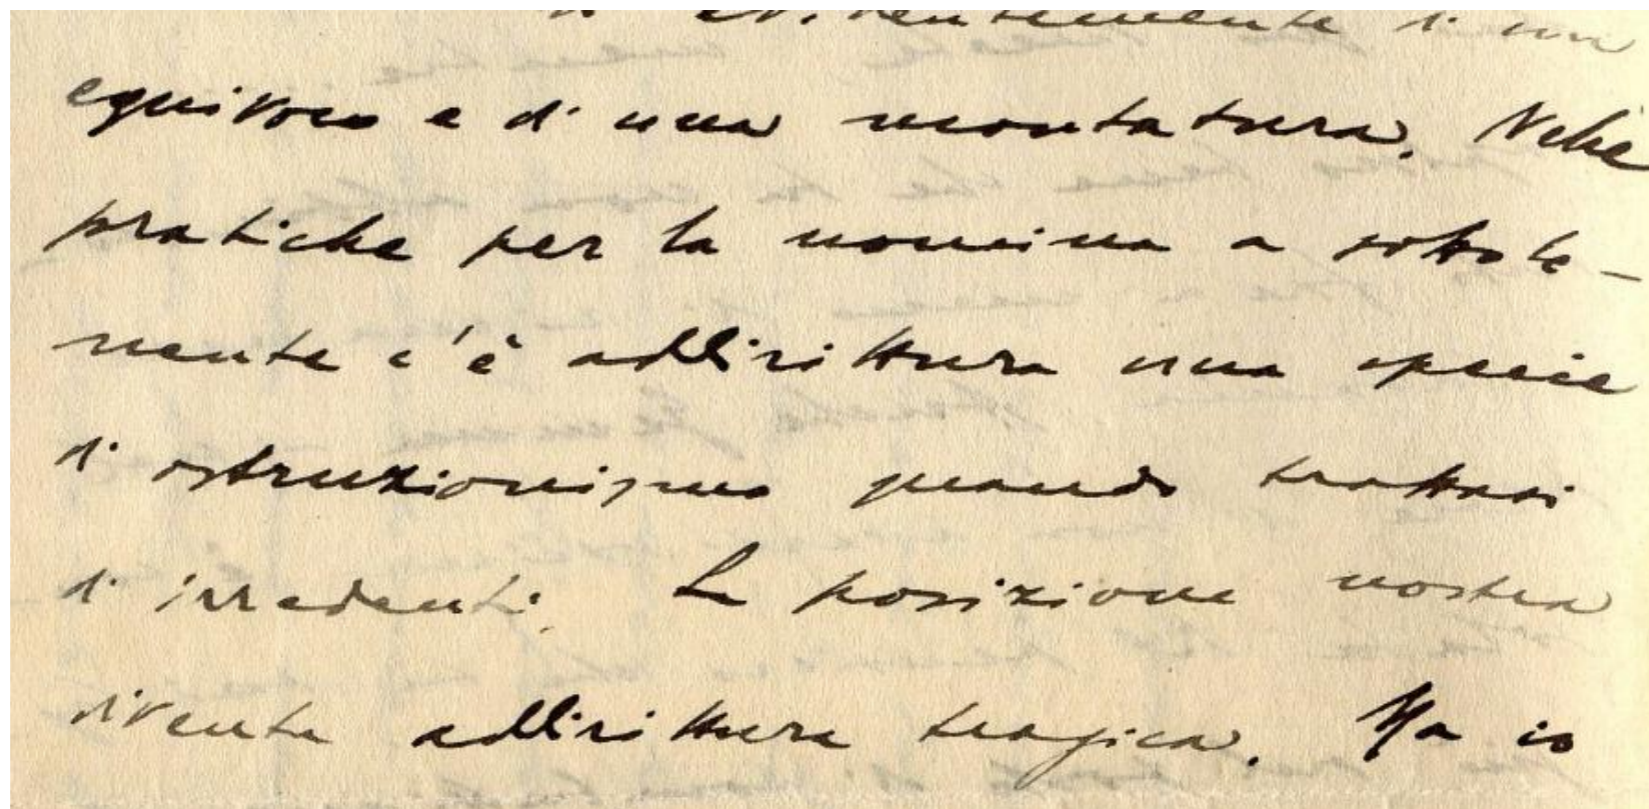 evidentemente di un
equivoco e di una montatura. Nelle
pratiche per la nomina a sottote-
nente c'è addirittura una specie
di ostruzionismo quando trattasi
di irredenti. La posizione nostra
diventa addirittura tragica. Ma io